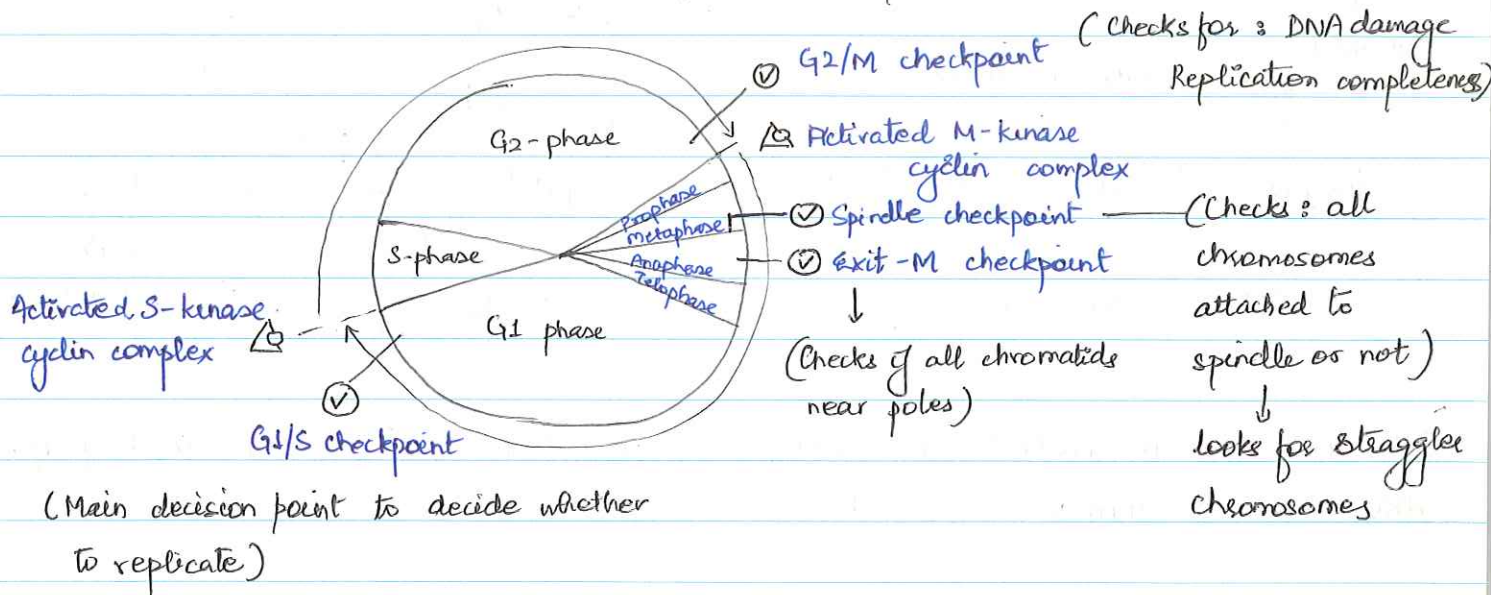 (Checks for : DNA damage
Replication completeness)
G2/M checkpoint
G2-phase
Activated M-kinase
cyclin complex
Prophase
Metaphase
Anaphase
Telophase
Spindle checkpoint
(Checks : all
chromosomes
attached to
spindle or not)
↓
looks for straggler
chromosomes
Exit-M checkpoint
↓
(Checks if all chromatids
near poles)
S-phase
G1 phase
Activated S-kinase
cyclin complex
G1/S checkpoint
(Main decision point to decide whether
to replicate)